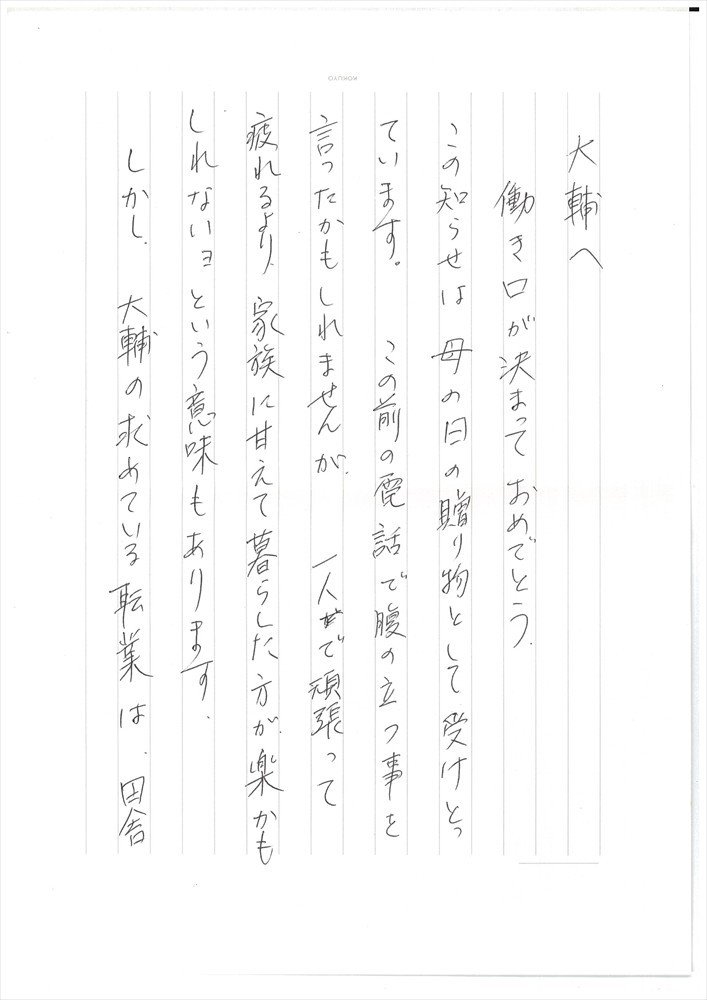 大輔へ
働き口が決まって おめでとう.
この知らせは 母の日の贈り物として 受けとっ
ています。 この前の電話で腹の立つ事を
言ったかもしれませんが、 一人で頑張って
疲れるより、家族に甘えて暮らした方が、楽かも
しれないョ という意味もあります.
しかし、 大輔の求めている転業は、田舎
KOKUYO